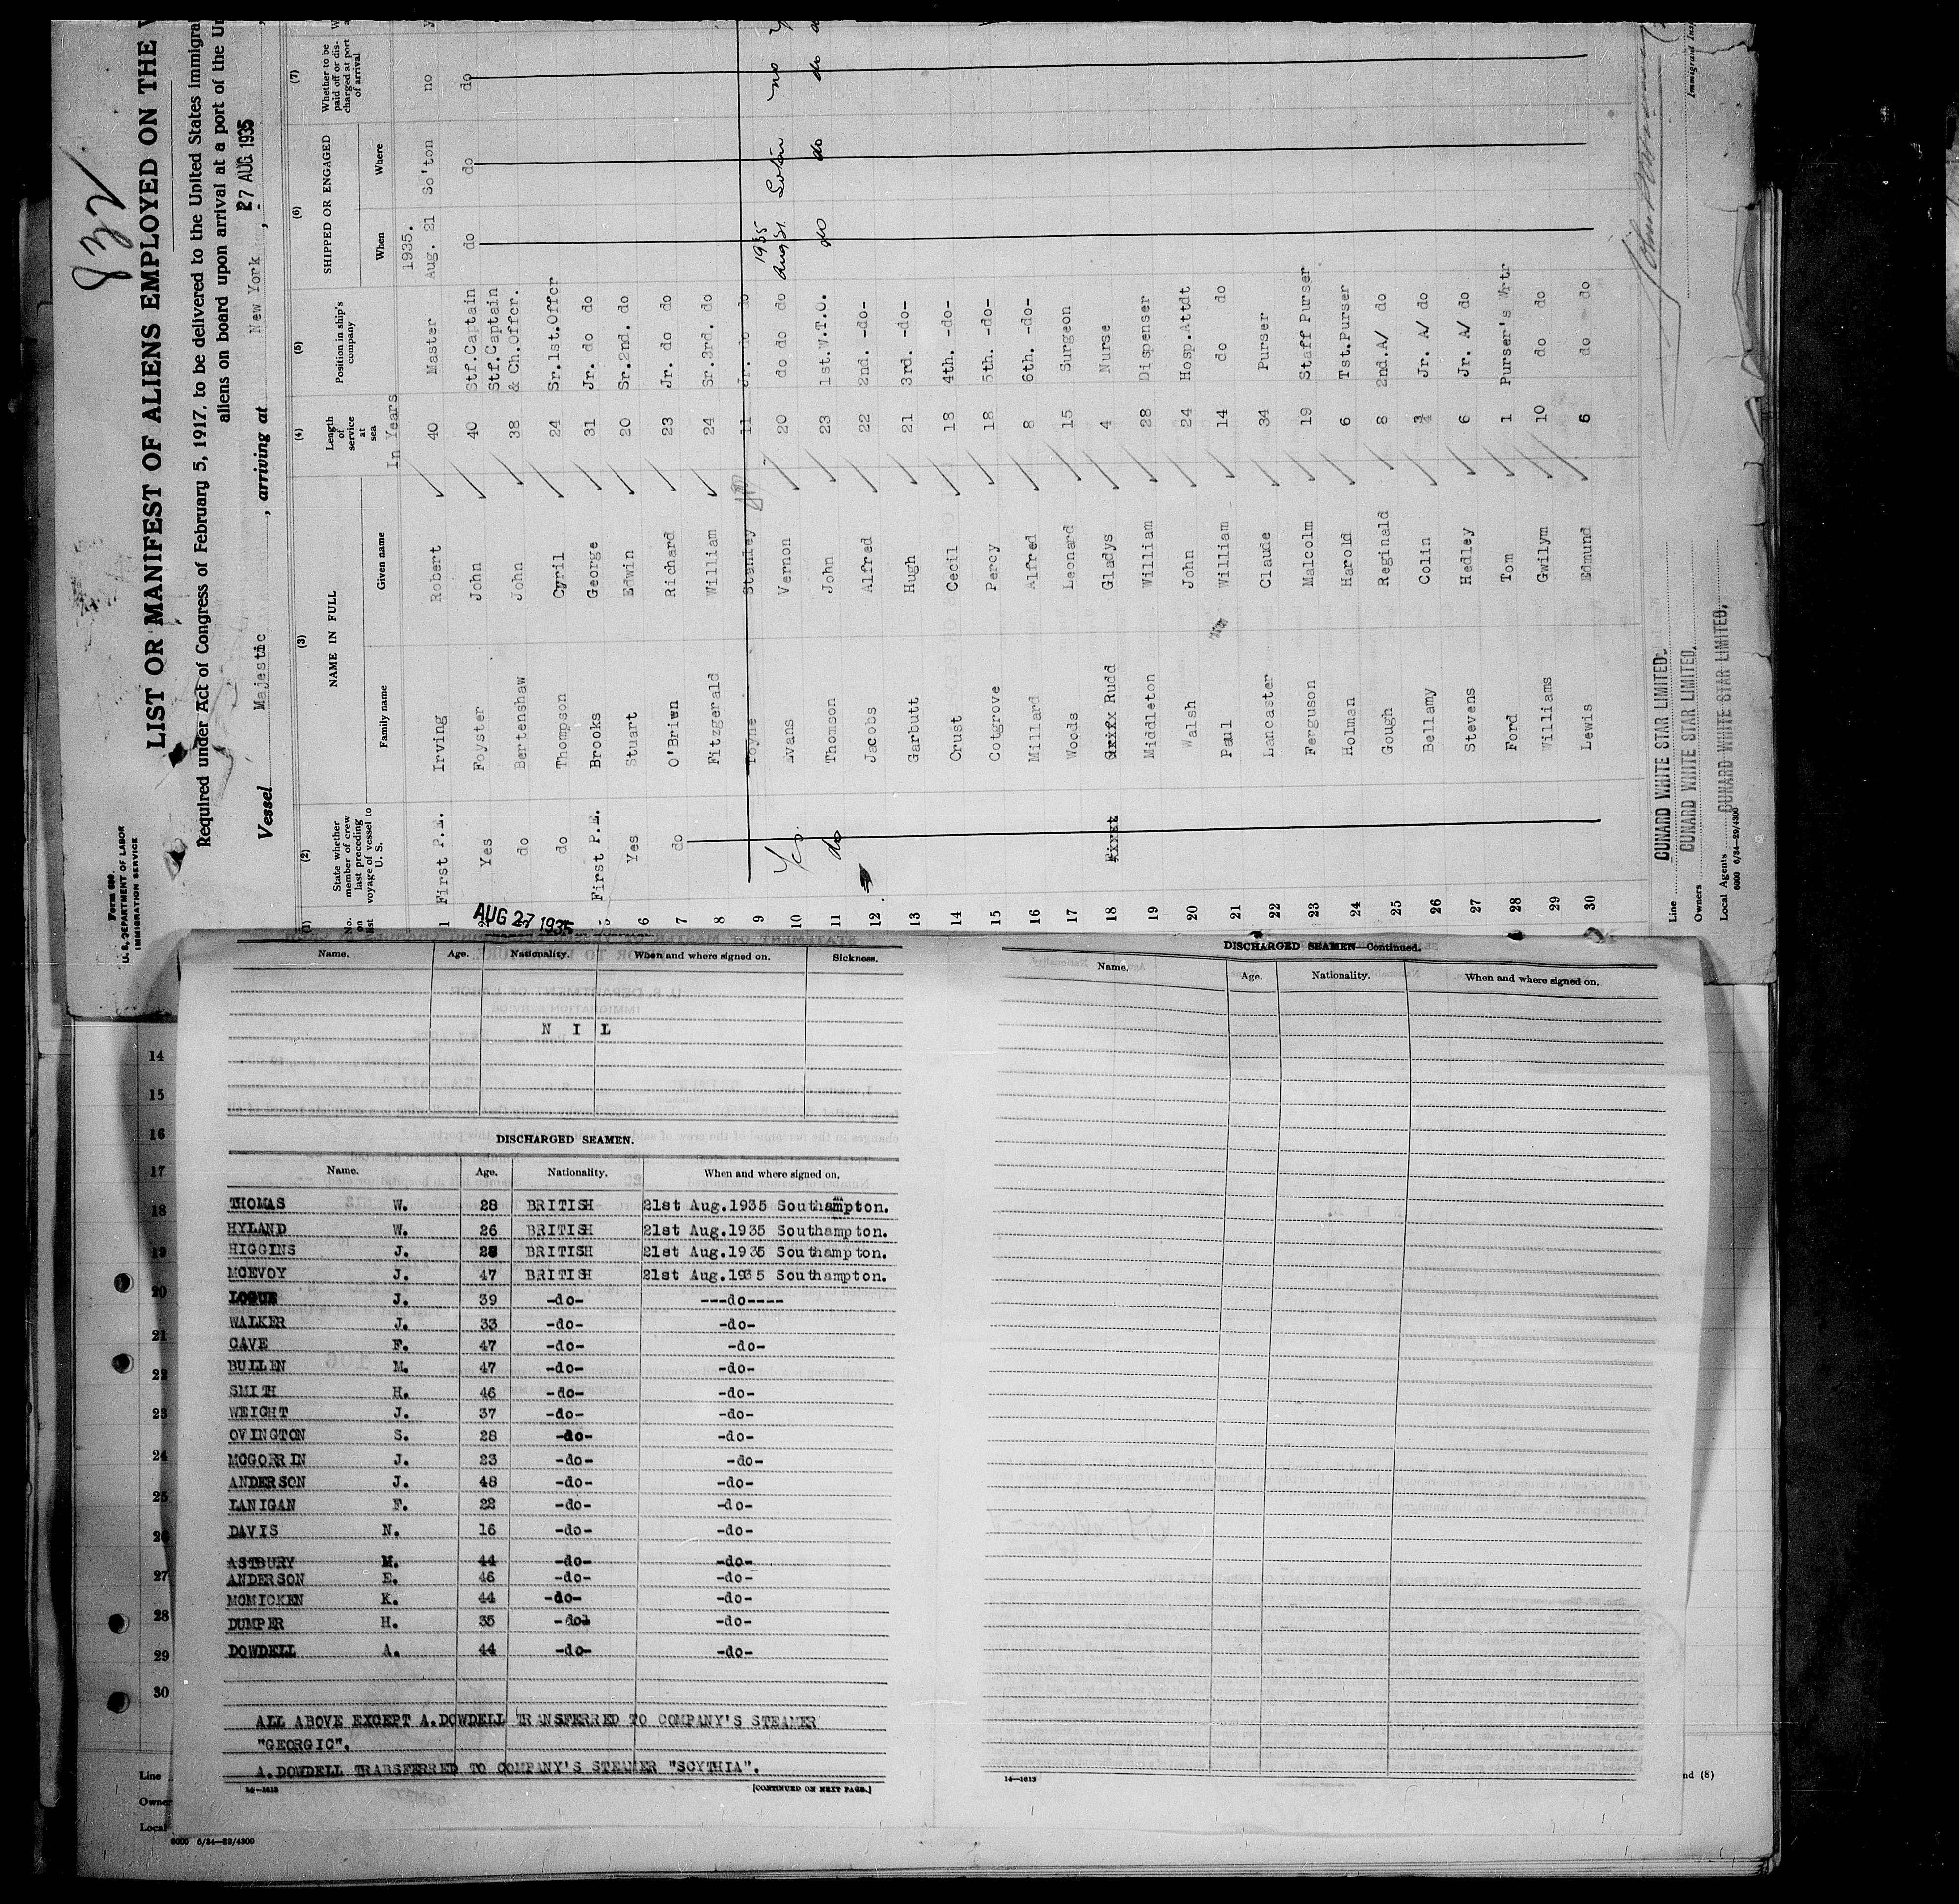 832
LIST OR MANIFEST OF ALIENS EMPLOYED ON THE
Required under Act of Congress of February 5, 1917, to be delivered to the United States immigra
aliens on board upon arrival at a port of the Un
Vessel Majestic , arriving at New York , 27 AUG 1935
Form 680
U. S. DEPARTMENT OF LABOR
IMMIGRATION SERVICE
(1) (2) (3) (4) (5) (6) (7)
No. on list State whether member of crew last preceding voyage of vessel to U. S. NAME IN FULL Length of service at sea Position in ship's company SHIPPED OR ENGAGED Whether to be paid off or discharged at port of arrival
Family name Given name When Where
In Years 1935.
1 First P.E. Irving Robert 40 Master Aug. 21 So'ton no y
2 Yes Foyster John 40 Stf.Captain do do do
AUG 27 1935
do Bertenshaw John 38 Stf.Captain & Ch.Offcr.
do Thompson Cyril 24 Sr.1st.Offcr
5 First P.E. Brooks George 31 Jr. do do
6 Yes Stuart Edwin 20 Sr.2nd. do
7 do O'Brien Richard 23 Jr. do do
8 Fitzgerald William 24 Sr.3rd. do
9 Toyne Stanley 11 Jr. do do
10 Yes Evans Vernon 20 do do do 1935 Aug 21. Soton no y
11 do Thomson John 23 1st.W.T.O. do do do do
12 Jacobs Alfred 22 2nd. -do-
13 Garbutt Hugh 21 3rd. -do-
14 Crust Cecil 18 4th. -do-
15 Cotgrove Percy 18 5th. -do-
16 Millard Alfred 8 6th. -do-
17 Woods Leonard 15 Surgeon
18 First Rudd Gladys 4 Nurse
19 Middleton William 28 Dispenser
20 Walsh John 24 Hosp.Attdt
21 Paul William 14 do do
22 Lancaster Claude 34 Purser
23 Ferguson Malcolm 19 Staff Purser
24 Holman Harold 6 Tst.Purser
25 Gough Reginald 8 2nd.A/ do
26 Bellamy Colin Jr. A/ do
27 Stevens Hedley 6 Jr. A/ do
28 Ford Tom 1 Purser's Wrtr
29 Williams Gwilym 10 do do
30 Lewis Edmund 6 do do
Line CUNARD WHITE STAR LIMITED.
Owners CUNARD WHITE STAR LIMITED.
Local Agents CUNARD WHITE STAR LIMITED.
6000 6/34—29/4300
Immigrant Ins
Name. Age. Nationality. When and where signed on. Sickness.
N I L
DISCHARGED SEAMEN.
Name. Age. Nationality. When and where signed on.
THOMAS W. 28 BRITISH 21st Aug.1935 Southampton.
HYLAND W. 26 BRITISH 21st Aug.1935 Southampton.
HIGGINS J. 28 BRITISH 21st Aug.1935 Southampton.
MCEVOY J. 47 BRITISH 21st Aug.1935 Southampton.
LOGUE J. 39 -do- ---do----
WALKER J. 33 -do- -do-
CAVE F. 47 -do- -do-
BULLEN M. 47 -do- -do-
SMITH H. 46 -do- -do-
WEIGHT J. 37 -do- -do-
OVINGTON S. 28 -do- -do-
MCGORRIN J. 23 -do- -do-
ANDERSON J. 48 -do- -do-
LANIGAN F. 22 -do- -do-
DAVIS N. 16 -do- -do-
ASTBURY M. 44 -do- -do-
ANDERSON E. 46 -do- -do-
MCMICKEN K. 44 -do- -do-
DUMPER H. 35 -do- -do-
DOWDELL A. 44 -do- -do-
ALL ABOVE EXCEPT A.DOWDELL TRANSFERRED TO COMPANY'S STEAMER
"GEORGIC".
A.DOWDELL TRABSFERRED TO COMPANY'S STEAMER "SCYTHIA".
14—1613 [CONTINUED ON NEXT PAGE.]
DISCHARGED SEAMEN—Continued.
Name. Age. Nationality. When and where signed on.
14—1613
14
15
16
17
18
19
20
21
22
23
24
25
26
27
28
29
30
Line
Owner
Local
6000 6/34—29/4300
nd (8)